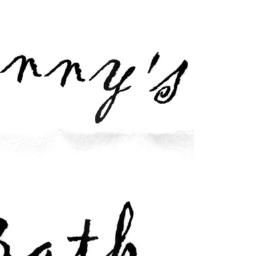 nny's
ath